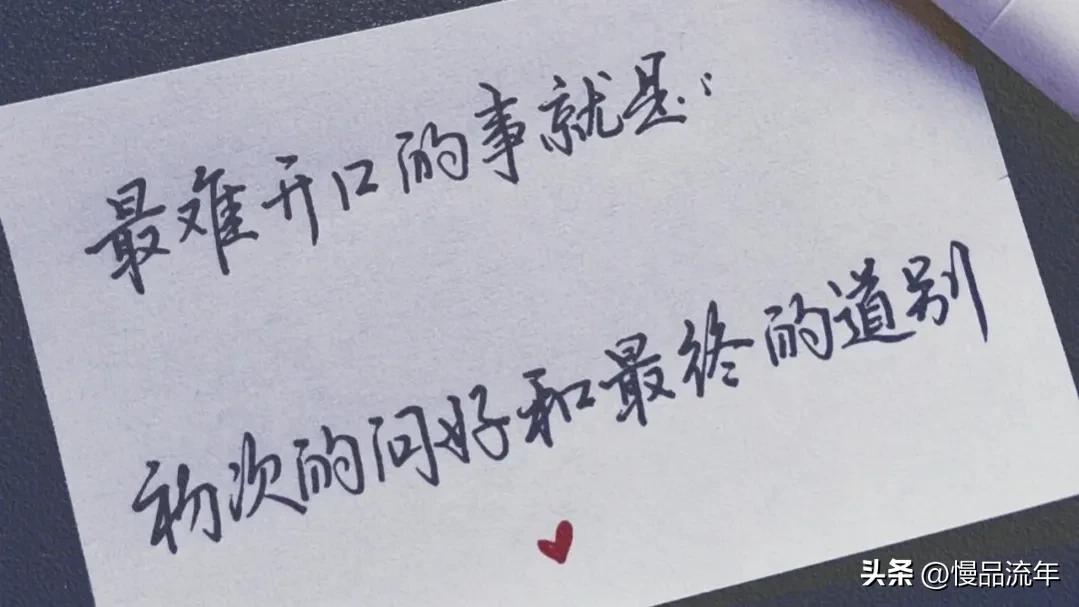 最难开口的事就是：
初次的问好和最终的道别
头条 @慢品流年